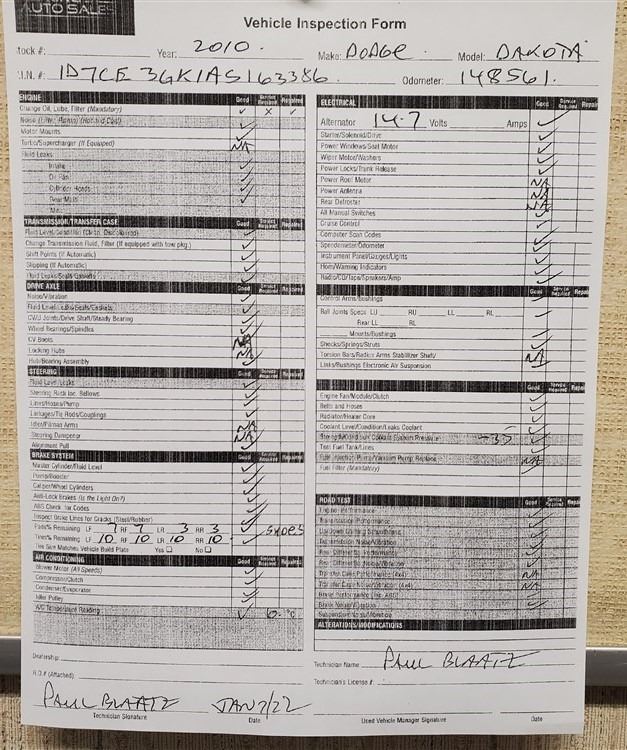 AUTO SALES
Vehicle Inspection Form
tock #: Year: 2010. Make: DODGE Model: DAKOTA
.I.N. #: 1D7CE3GK1AS163386. Odometer: 148561.
ENGINE Good Service Required Repaired
Change Oil, Lube, Filter (Mandatory) ✓ X ✓
Motor Mounts
Turbo/Supercharger (If Equipped) NA
Fluid Leaks
Intake
Oil Pan
Rear Main
TRANSMISSION/TRANSFER CASE Good Service Required Repaired
Change Transmission Fluid, Filter (If equipped with tow pkg.)
Shift Points (If Automatic)
Slipping (If Automatic)
Fluid Leaks/Seals/Gaskets
DRIVE AXLE Good Service Required Repaired
Noise/Vibration
CV/U Joints/Drive Shaft/Steady Bearing
Wheel Bearings/Spindles
CV Boots NA
Locking Hubs NA
Hub/Bearing Assembly
STEERING Good Service Required Repaired
Fluid Level/Leaks
Steering Rack Inc. Bellows
Lines/Hoses/Pump
Linkages/Tie Rods/Couplings
Idler/Pitman Arms NA
Steering Dampener NA
Alignment Pull
BRAKE SYSTEM Good Service Required Repaired
Master Cylinder/Fluid Level
Pump/Booster
Caliper/Wheel Cylinders
Anti-Lock Brakes (Is the Light On?)
ABS Check for Codes
Inspect Brake Lines for Cracks (Steel/Rubber)
Pads% Remaining LF 7 RF 7 LR 3 RR 3 SHOES
Tires% Remaining LF 10 RF 10 LR 10 RR 10
Tire Size Matches Vehicle Build Plate Yes ☐ No ☐
AIR CONDITIONING Good Service Required Repaired
Blower Motor (All Speeds)
Compressor/Clutch
Condenser/Evaporator
Idler Pulley
A/C Temperature Reading ✓ 6 °C
Dealership:
R.O.# (Attached)
PAUL BLAATZ JAN 7/22
Technician Signature Date
ELECTRICAL Good Service Required Repair
Alternator 14.7 Volts Amps
Starter/Solenoid/Drive
Power Windows/Seat Motor
Wiper Motor/Washers
Power Locks/Trunk Release
Power Roof Motor NA
Power Antenna NA
Rear Defroster NA
All Manual Switches
Cruise Control
Computer Scan Codes
Speedometer/Odometer
Instrument Panel/Gauges/Lights
Horn/Warning Indicators
Radio/CD/Tape/Speakers/Amp
Good Service Required Repai
Control Arms/Bushings
Ball Joints Specs LU RU LL RL
Rear LL RL
Mounts/Bushings
Shocks/Springs/Struts
Torsion Bars/Radius Arms Stabilizer Shaft/ NA
Links/Bushings Electronic Air Suspension
Good Service Required Repai
Engine Fan/Module/Clutch
Belts and Hoses
Radiator/Heater Core
Coolant Level/Condition/Leaks Coolant
Strength/Condition Coolant System Pressure -35
Test Fuel Tank/Lines
Fuel Injection Pump/Vacuum Pump Replace NA
Fuel Filter (Mandatory)
ROAD TEST Good Service Required Repai
Engine Performance
Transmission Performance
Transmission Noise/Vibration
Transfer Case Performance (4x4) NA
Transfer Case Noise/Vibration (4x4) NA
Brake Performance Inc. ABS
Brake Noise/Vibration
Suspension Noise/Vibration
ALTERATIONS/MODIFICATIONS
Technician Name PAUL BLAATZ
Technician's License #:
Used Vehicle Manager Signature Date